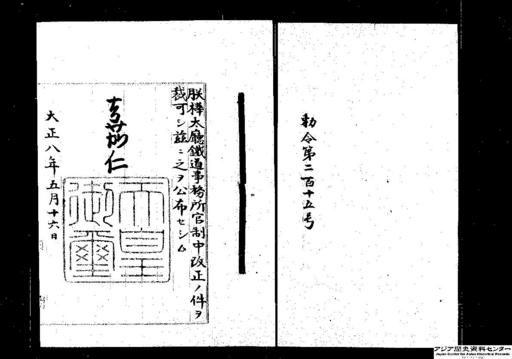 勅令第二百十五号
朕樺太廳鐵道事務所官制中改正ノ件ヲ
裁可シ茲ニ之ヲ公布セシム
嘉仁
天皇
御璽
大正八年五月十六日
アジア歴史資料センター
Japan Center for Asian Historical Records